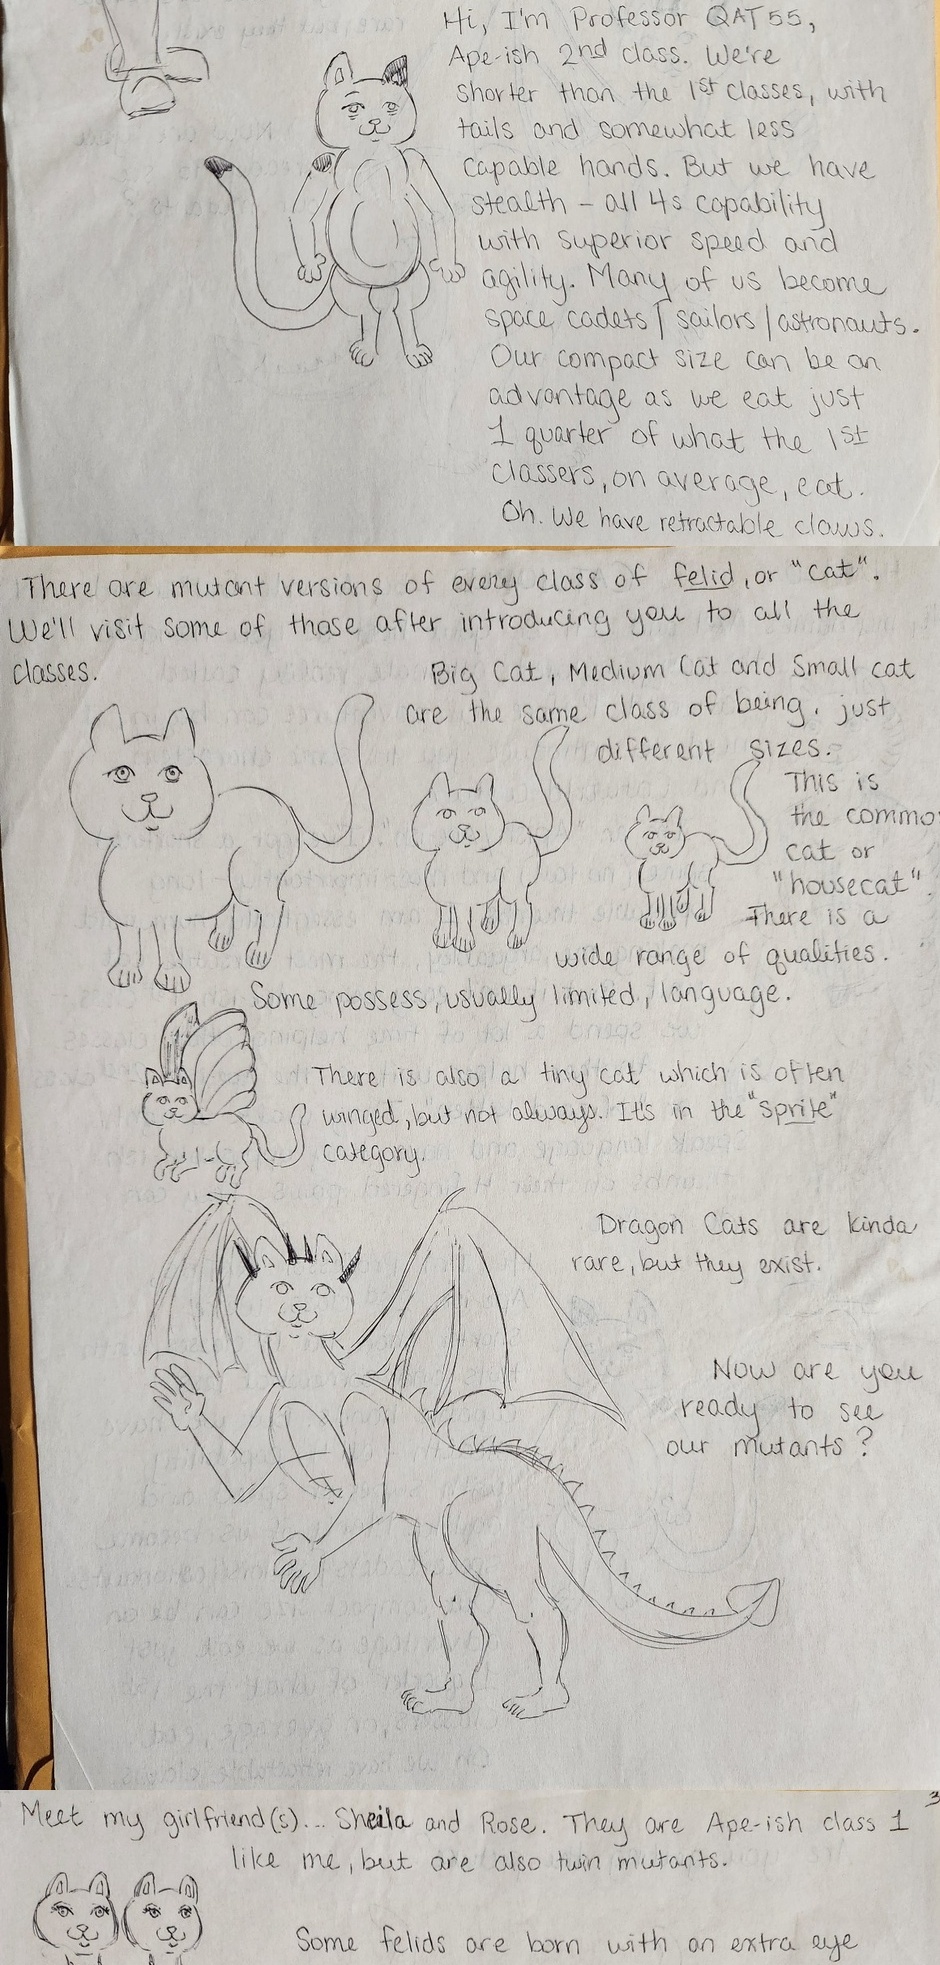 Hi, I'm Professor QAT55,
Ape-ish 2nd class. We're
shorter than the 1st classes, with
tails and somewhat less
capable hands. But we have
stealth - all 4s capability
with superior speed and
agility. Many of us become
space cadets / sailors / astronauts.
Our compact size can be an
advantage as we eat just
1 quarter of what the 1st
classers, on average, eat.
Oh. We have retractable claws.
There are mutant versions of every class of felid, or "cat".
We'll visit some of those after introducing you to all the
classes.
Big Cat, Medium Cat and Small cat
are the same class of being, just
different sizes.
This is
the commo
cat or
"housecat".
There is a
wide range of qualities.
Some possess, usually limited, language.
There is also a tiny cat which is often
winged, but not always. It's in the "sprite"
category.
Dragon Cats are kinda
rare, but they exist.
Now are you
ready to see
our mutants?
3
Meet my girlfriend(s)... Sheila and Rose. They are Ape-ish class 1
like me, but are also twin mutants.
Some felids are born with an extra eye